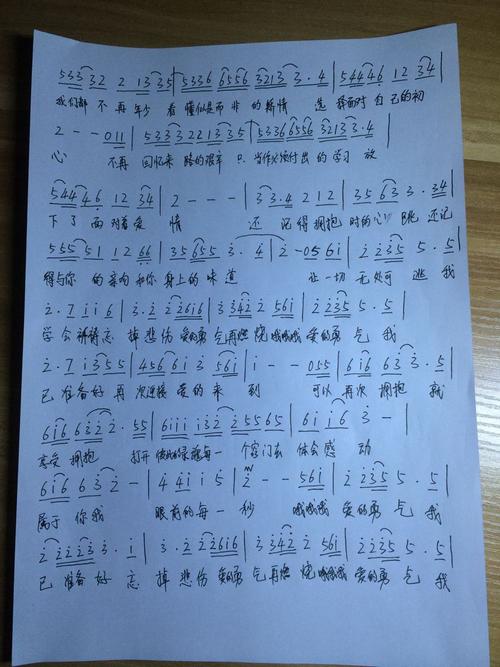 533 32 2 13 35 | 5336 6556 3213 3·4 | 5446 12 34
我们都 不 再 年少 看 懂似是而 非 的 爱情 选 择面对 自己的初
2 - - 011 | 5333 22 13 35 | 5336 6556 3213 3·4
心 不再 回忆来 路的艰辛 只 当作必须付出 的 学习 放
5446 12 34 | 2 - - - | 3 3·4 212 | 35 63 3·34
下 了 面 对着 爱 情 还 记得 拥抱 时的心 跳 还记
555 51 12 66 | 35 655 3· 4 | 2 - 056i | 2 235 5·5
得与你 的 亲吻 和你 身上的 味道 让一切 无处可 逃 我
2·7 i i 6 | 3·2 2 2 6i6 | 3 342 2 56i | 2 235 5·5
学 会 忘 掉 悲伤 爱的勇 气 再燃 烧 哦哦哦 爱的勇 气 我
2·7 i 3 5 5 | 4 5 6 6i 3 56i | i - - 055 | 6i6 63 3·5
已 准备 好 再 次迎接 爱 的 来 到 可以 再次 拥抱 就
6i6 632 2·55 | 6iii i32 2 5565 | 6i i6 3 -
享受 拥抱 打开 每一 个窗门去 体会 感 动
6i6 632 - | 4 4i i5 | 2 - - 56i | 2 235 5·5
属于 你我 眼前的 每 一 秒 哦哦哦 爱的勇 气 我
2 2223 3·i | 3·2 2 2 6i6 | 3 342 2 56i | 2 235 5·5
已 准备 好 忘 掉 悲伤 爱的勇 气 再燃 烧 哦哦哦 爱的勇 气 我